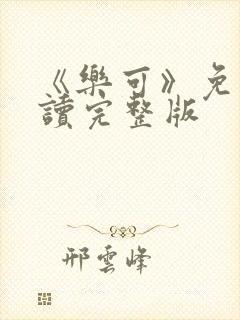 《樂可》免
讀完整版
邢雲峰